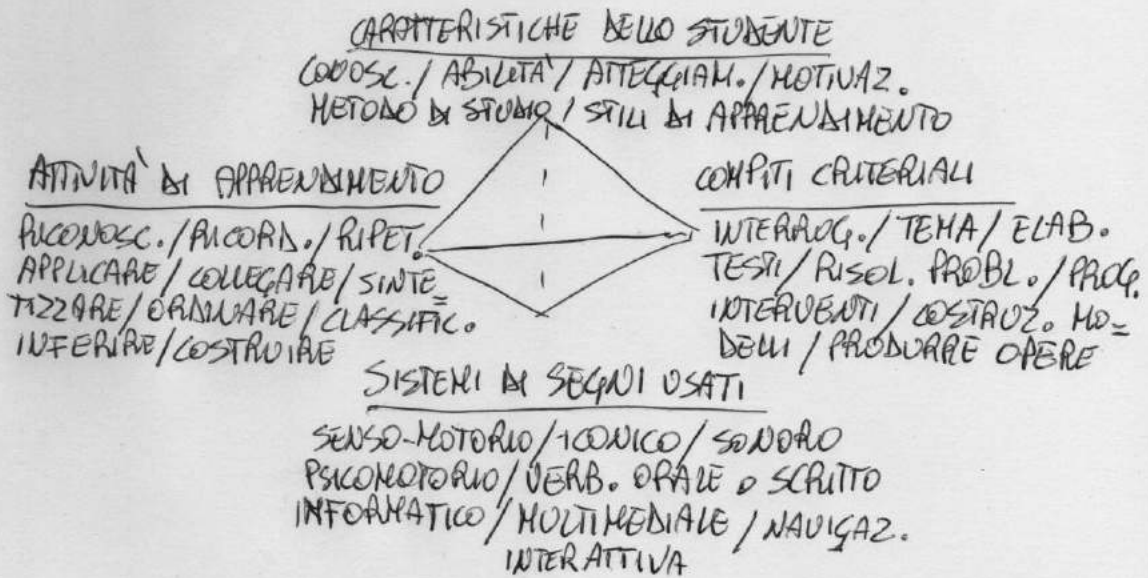 CARATTERISTICHE DELLO STUDENTE
CONOSC./ABILITÀ/ATTEGGIAM./MOTIVAZ.
METODO DI STUDIO/STILI DI APPRENDIMENTO
ATTIVITÀ DI APPRENDIMENTO
RICONOSC./RICORD./RIPET.
APPLICARE/COLLEGARE/SINTE=
TIZZARE/ORDINARE/CLASSIFIC.
INFERIRE/COSTRUIRE
COMPITI CRITERIALI
INTERROG./TEMA/ELAB.
TESTI/RISOL. PROBL./PROG.
INTERVENTI/COSTRUZ. MO=
DELLI/PRODURRE OPERE
SISTEMI DI SEGNI USATI
SENSO-MOTORIO/ICONICO/SONORO
PSICOMOTORIO/VERB. ORALE O SCRITTO
INFORMATICO/MULTIMEDIALE/NAVIGAZ.
INTERATTIVA